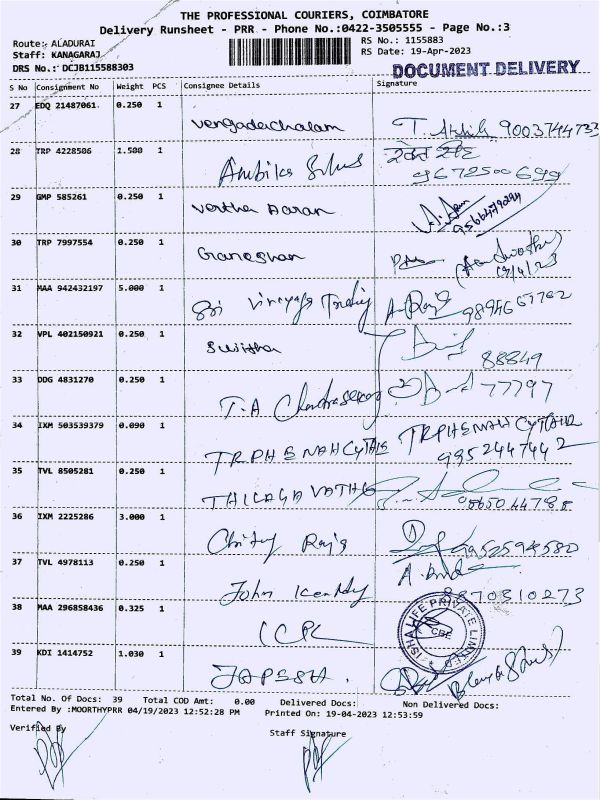 THE PROFESSIONAL COURIERS, COIMBATORE
Delivery Runsheet - PRR - Phone No.:0422-3505555 - Page No.:3
Route: ALADURAI
RS No.: 1155883
Staff: KANAGARAJ
RS Date: 19-Apr-2023
DRS No.: DCJB115588303
DOCUMENT DELIVERY
S No Consignment No Weight PCS Consignee Details Signature
27 EDQ 21487061 0.250 1
Vengadachalam 9003744733
28 TRP 4228506 1.500 1
Ambika 9672500699
29 GMP 585261 0.250 1
30 TRP 7997554 0.250 1
Ganeshan
31 MAA 942432197 5.000 1
Sri Vinayaga Trading
32 VPL 402150921 0.250 1
Sujitha 88849
33 DDG 4831270 0.250 1
T.A Chandrasekar 77797
34 IXM 503539379 0.090 1
TRPHENAHCYTHIR TRPHENAHCYTHIR
9952447442
35 TVL 8505281 0.250 1
THILAGAVATHI
36 IXM 2225286 3.000 1
Raja 9952594580
37 TVL 4978113 0.250 1
John Kennedy 8870310273
38 MAA 296858436 0.325 1
CCPL
LIFE PRIVATE LIMITED
CBE
39 KDI 1414752 1.030 1
JAPESH.
Total No. Of Docs: 39 Total COD Amt: 0.00 Delivered Docs: Non Delivered Docs:
Entered By :MOORTHYPRR 04/19/2023 12:52:28 PM Printed On: 19-04-2023 12:53:59
Verified By
Staff Signature